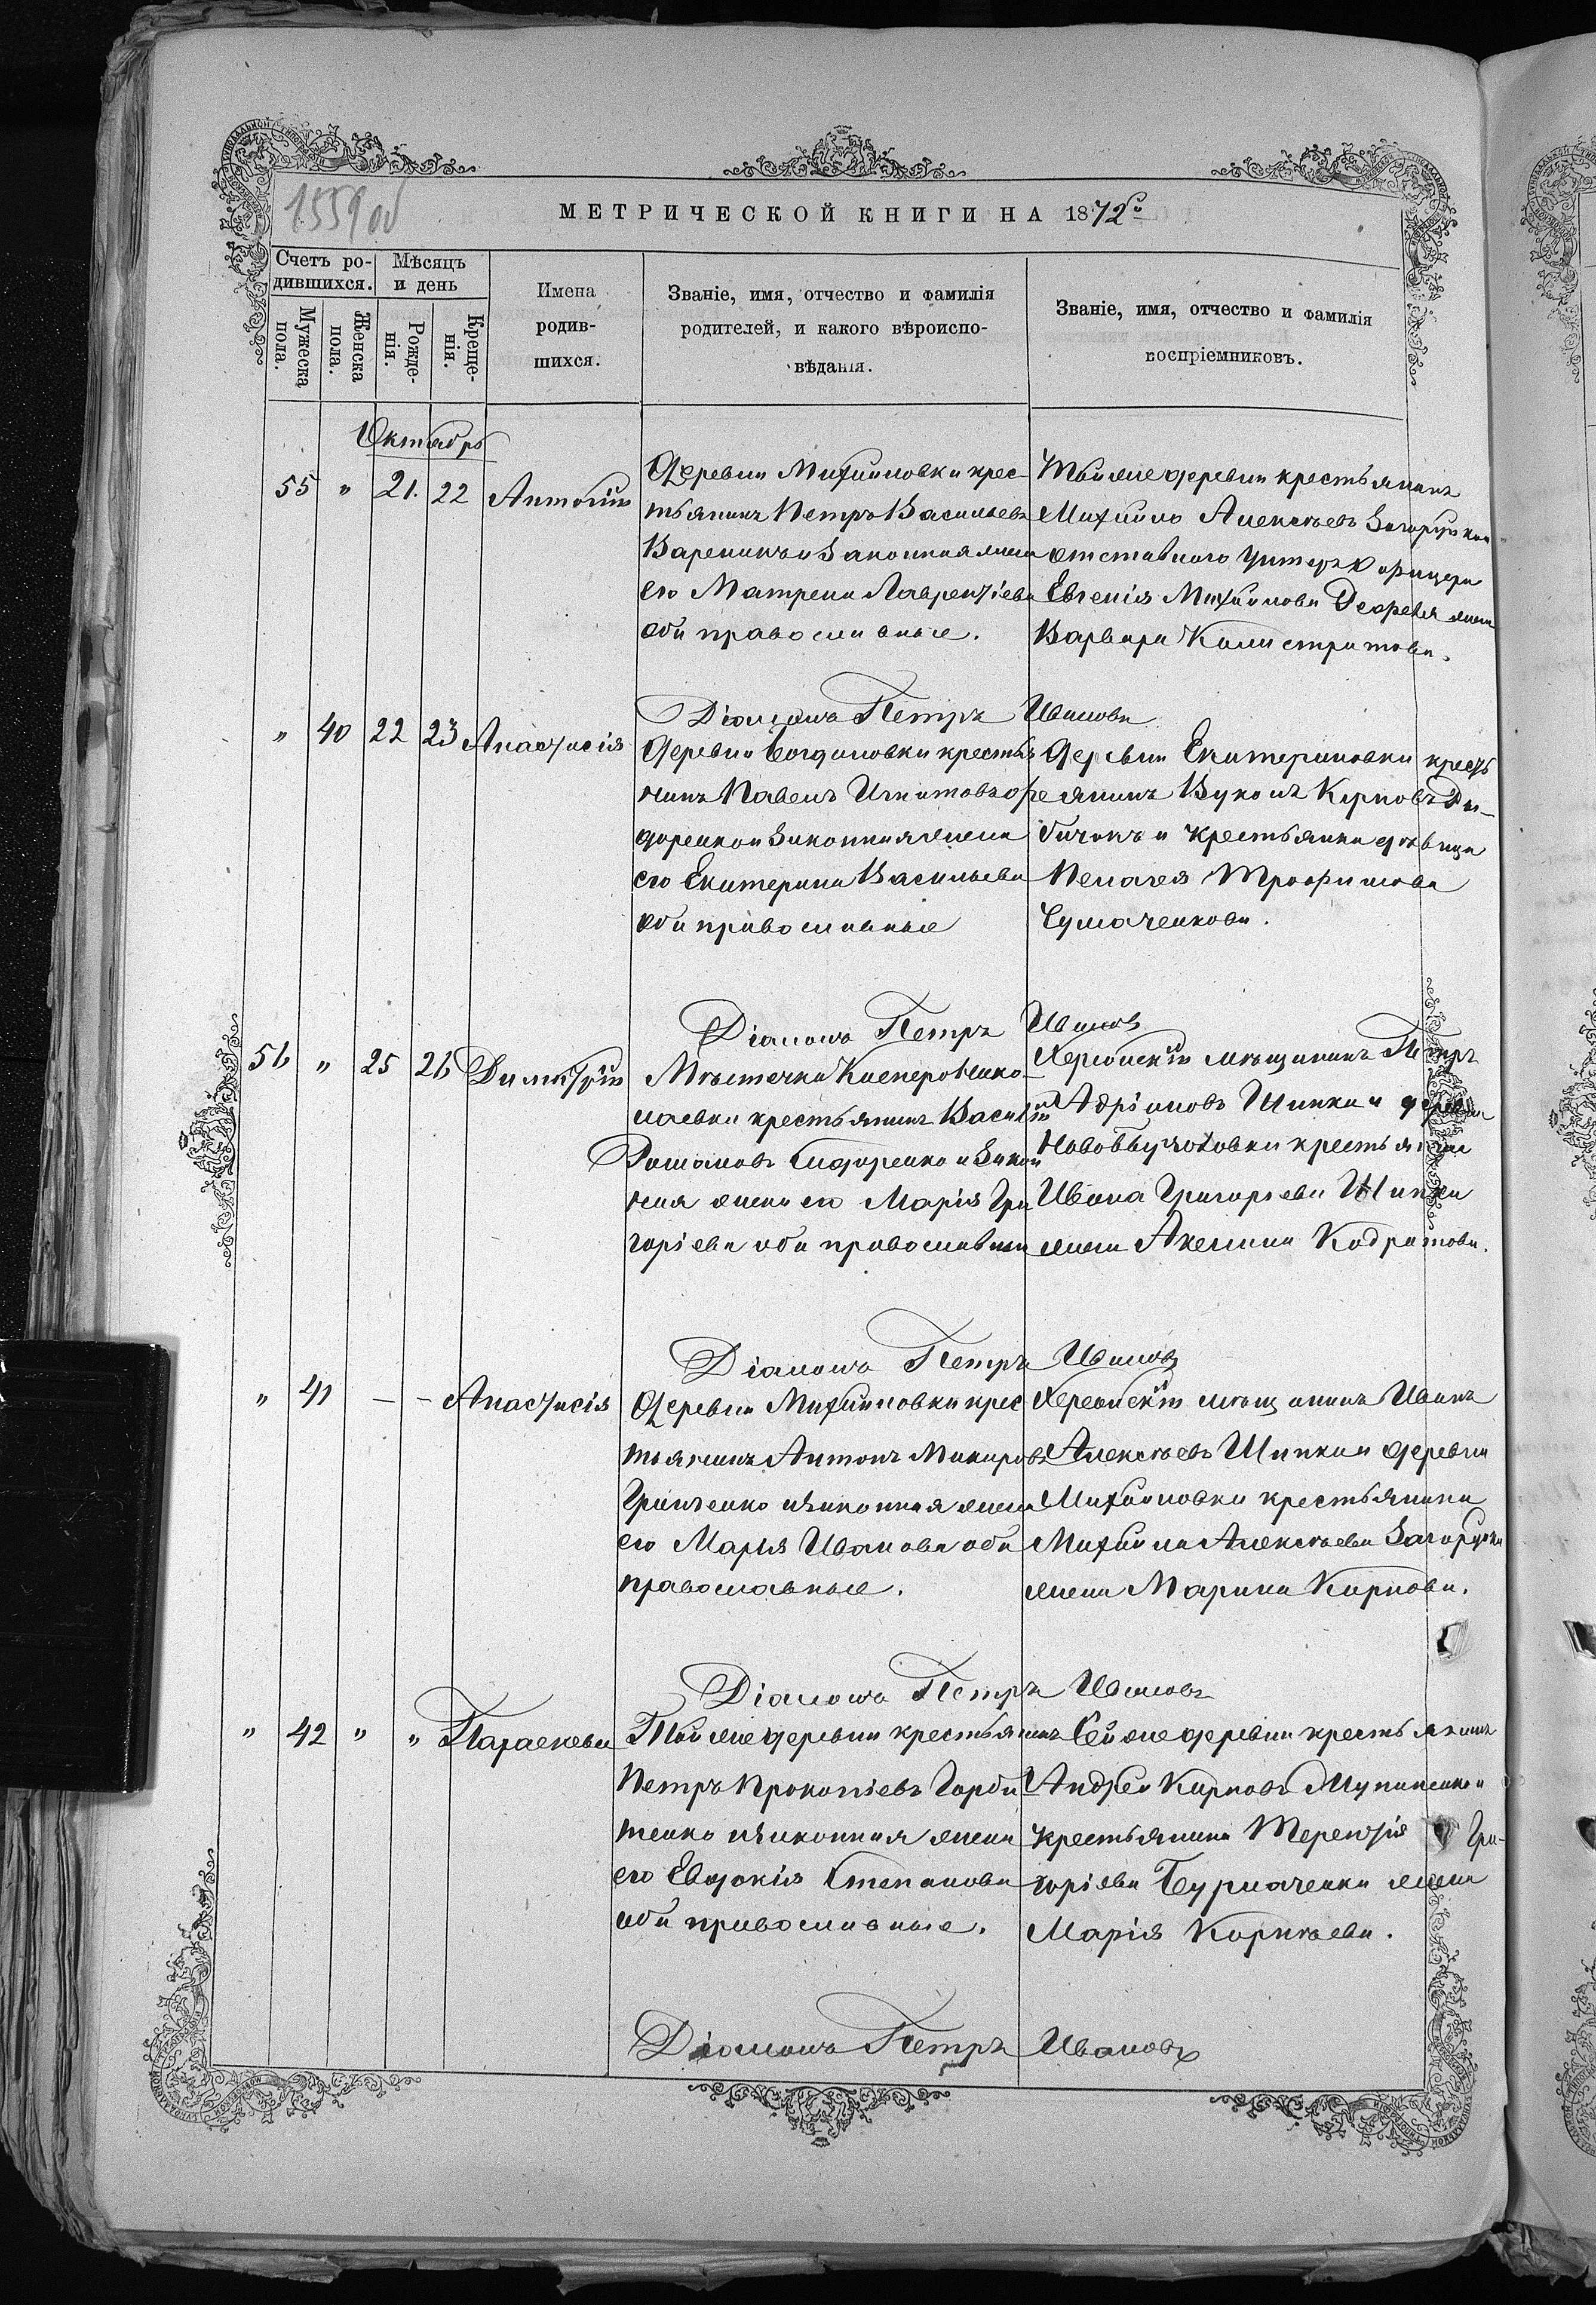 1559 об
МЕТРИЧЕСКОЙ КНИГИ НА 1872
Счетъ ро-
дившихся.
Мѣсяцъ
и день
Мужеска
пола.
Женска
пола.
Рожде-
нія.
Креще-
нія.
Имена
родив-
шихся.
Званіе, имя, отчество и фамилія
родителей, и какого вѣроиспо-
вѣданія.
Званіе, имя, отчество и фамилія
воспріемниковъ.
Октябрь
55 " 21. 22 Антоній
Деревни Михайловки крес-
тьянинъ Петръ Васильевъ
Вареникъ и законная жена
его Матрена Лаврентіева
оба православные.
Той же деревни крестьянинъ
Михайло Алексѣевъ
отставного унтеръ офицера
Евгенія Михайлова жена
Варвара Калистратова.
Діаконъ Петръ Ивановъ
" 40 22 23 Анастасія
Деревни Богдановки крестья
нинъ Павелъ Игнатовъ
и законная жена
его Екатерина Васильева
оба православные
Деревни Екатериновки кресть
янинъ Вуколъ Карповъ
и крестьянка дѣвица
Пелагея Трофимова
Чумаченкова.
Діаконъ Петръ Ивановъ
56 " 25 26 Димитрій
Мѣстечка Касперовнико-
лаевки крестьянинъ Василій
Романовъ Сидоренко и закон
ная жена его Марія Гри
горіева оба православные
Херсонскій мѣщанинъ Петръ
Адріановъ Шипка и деревни
крестьянина
Ивана Григорьева Шипки
жена Акелина Кодратова.
Діаконъ Петръ Ивановъ
" 41 – – Анастасія
Деревни Михайловки крес
тьянинъ Антонъ Макаровъ
Гринченко и законная жена
его Марья Иванова оба
православные.
Херсонскій мѣщанинъ Иванъ
Алексѣевъ Шипка и деревни
Михайловки крестьянина
Михайла Алексѣева
жена Марина Карпова.
Діаконъ Петръ Ивановъ
" 42 " " Параскева
Той же деревни крестьянинъ
Петръ Прокопіевъ Горба
тенко и законная жена
его Евдокія Степанова
оба православные.
Сей же деревни крестьянинъ
Андрей Карповъ
крестьянина Терентія Гри-
горіева Бурлаченка жена
Марія Корнѣева.
Діаконъ Петръ Ивановъ